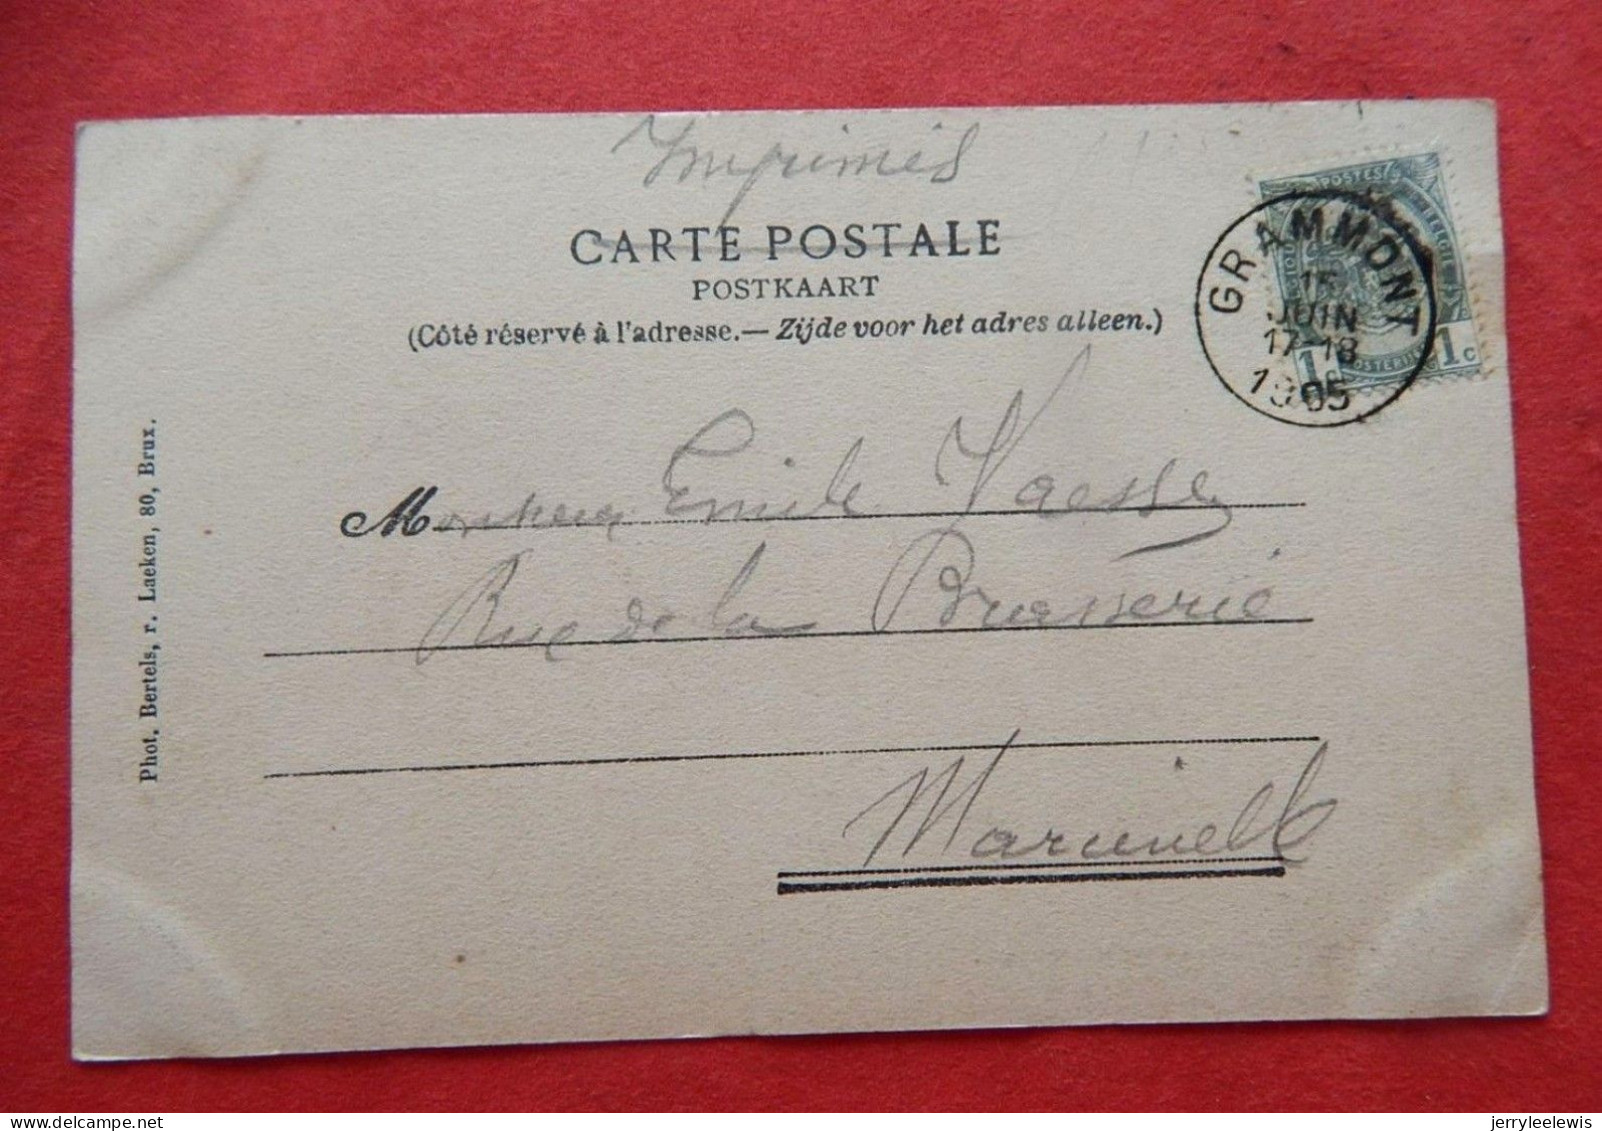 Imprimés
CARTE POSTALE
POSTKAART
(Côté réservé à l'adresse.— Zijde voor het adres alleen.)
POSTES
BELGIË
GRAMMONT
15
JUIN
17-18
1905
1 1c
Monsieur Emile Vaessen
Rue de la Brasserie
Marcinelle
Phot. Bertels, r. Laeken, 80, Brux.
delcampe.net
jerryleelewis